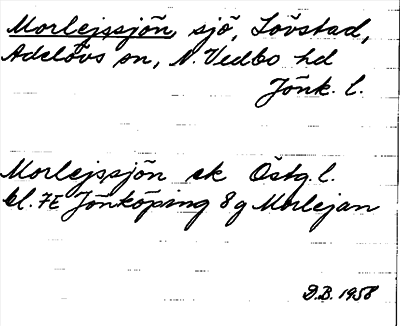 Morlejssjön, sjö, Lövstad,
Adelövs sn, N. Vedbo hd
Jönk. l.
Morlejssjön ek Östg. l.
bl. 7E Jönköping 8g Morlejan
D.B. 1958